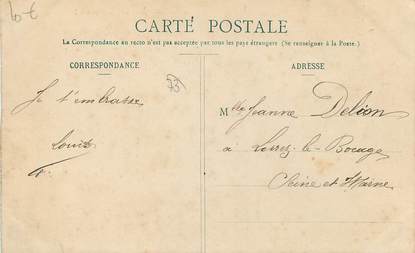 6€
CARTÉ POSTALE
La Correspondance au recto n'est pas acceptée par tous les pays étrangers (Se renseigner à la Poste.)
CORRESPONDANCE
ADRESSE
73
Je t'embrasse
Louis
Mlle Jeanne Delion
à Lorrez-le-Bocage
Seine et Marne